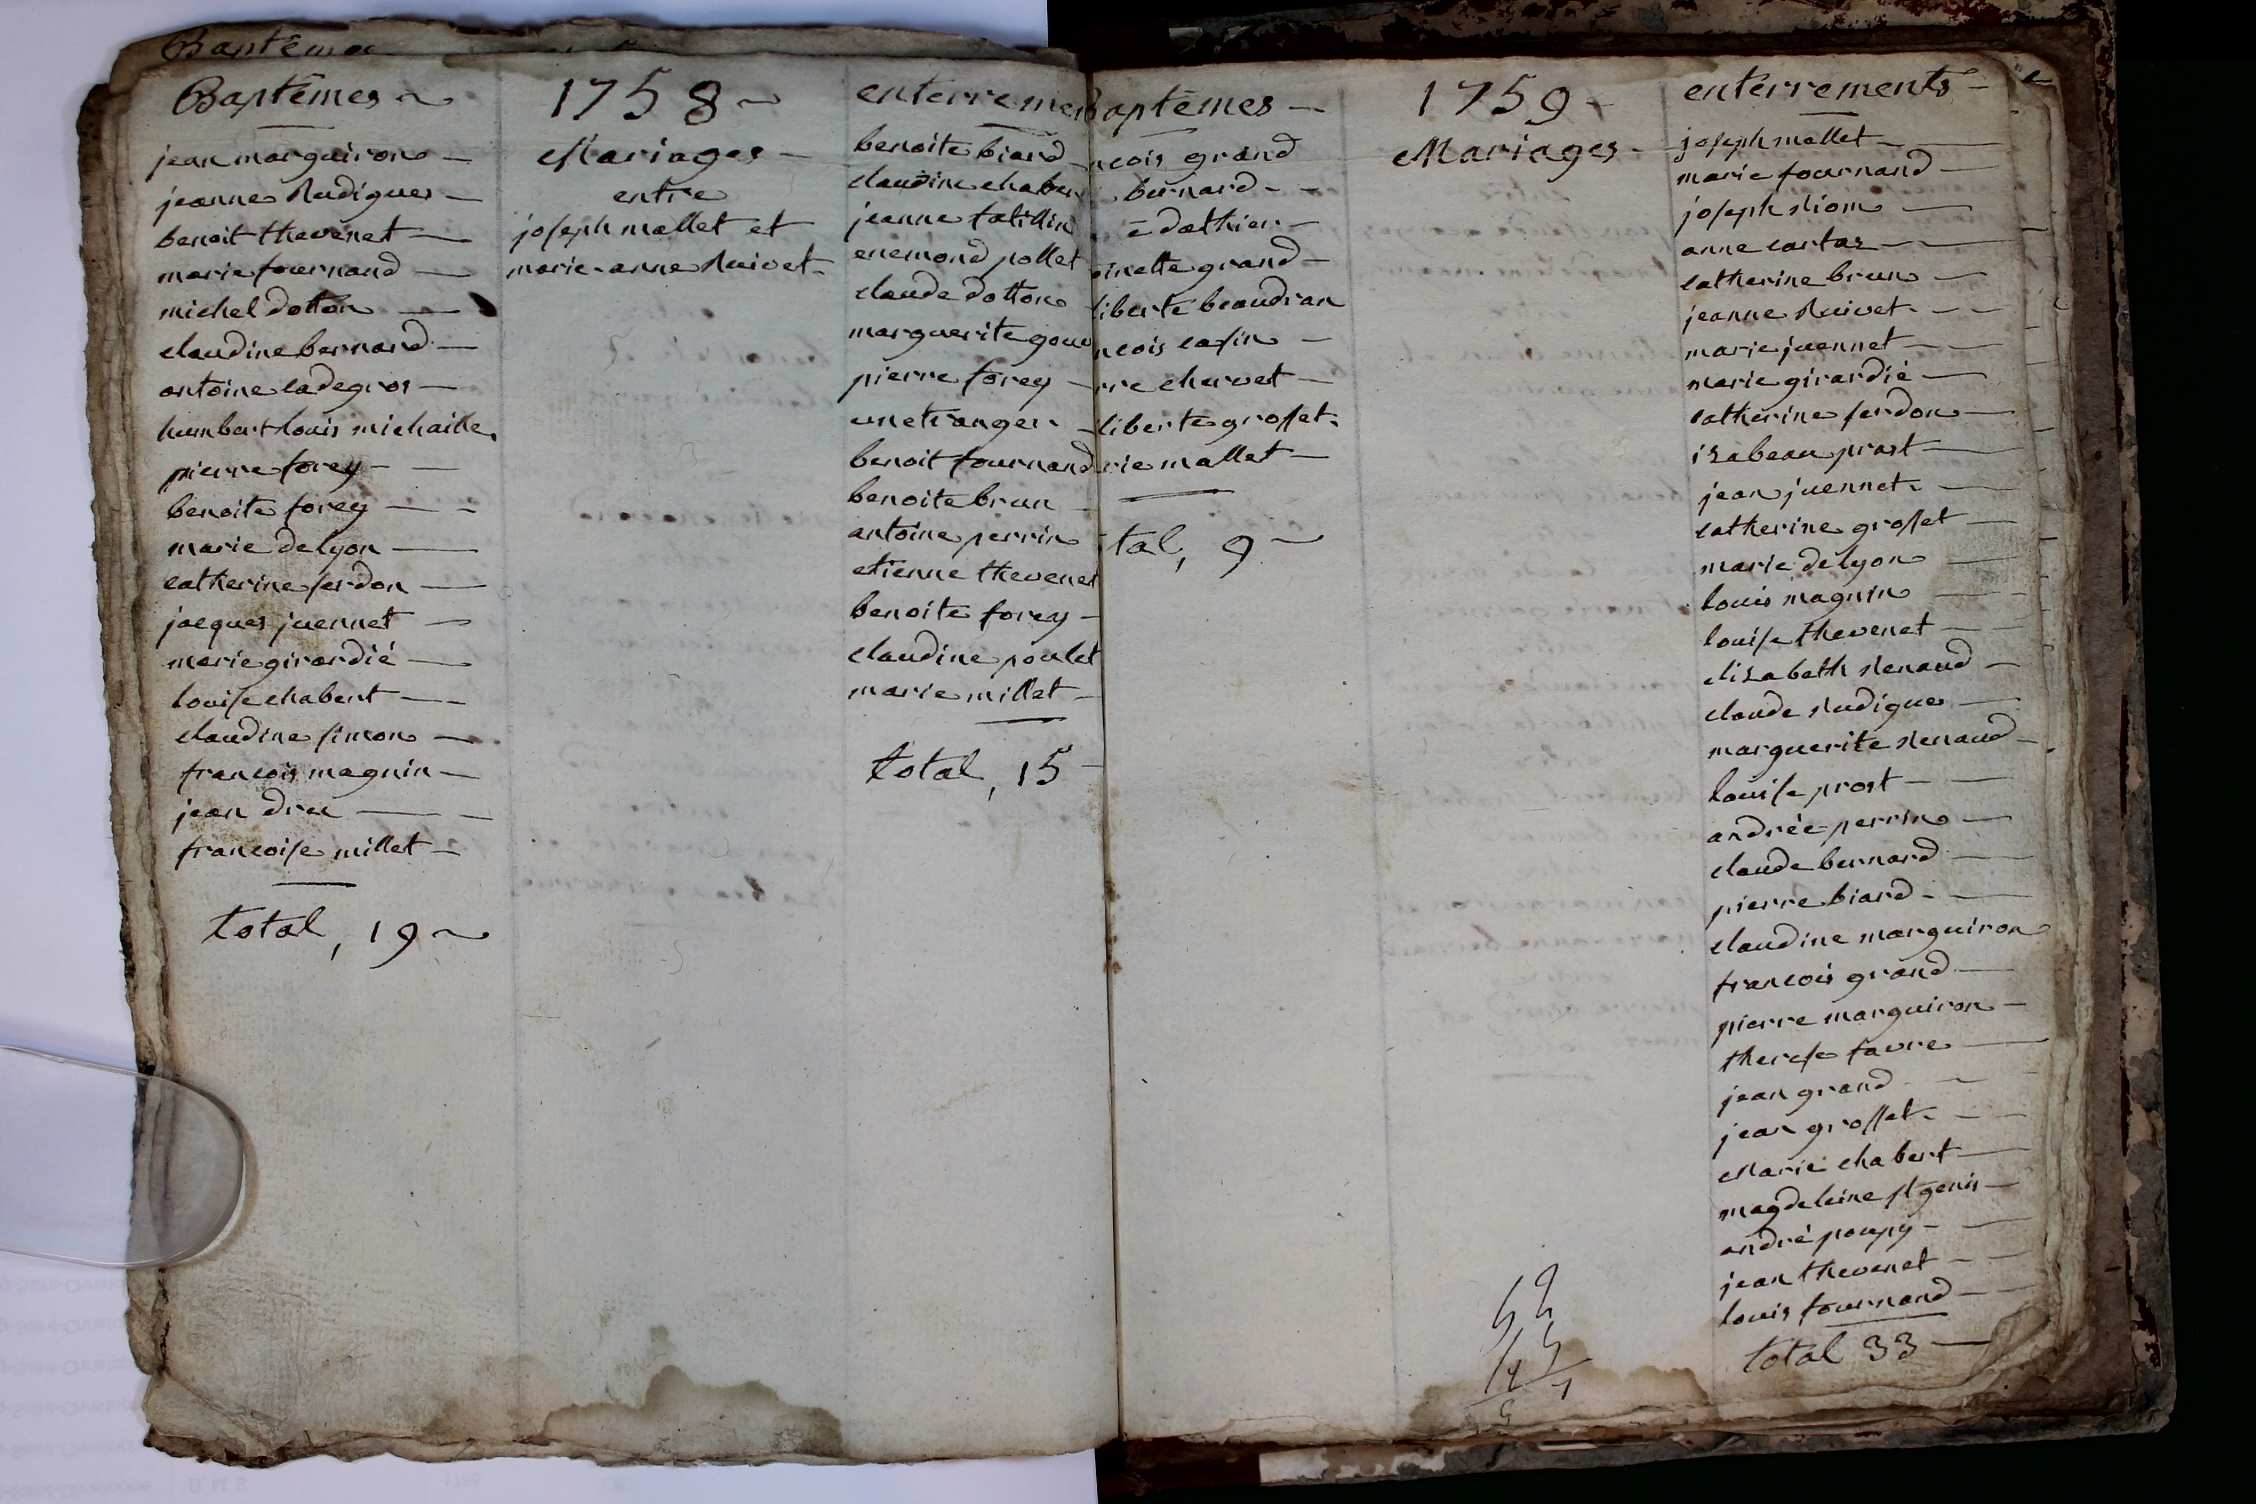 Baptêmes
Baptêmes
jean marguiron
jeanne Rudigue
benoit thevenet
marie fournand
michel dotton
claudine bernard
antoine cadegros
humbert louis michaille
pierre forey
benoite forey
marie delyon
catherine ferdon
jacques juennet
marie girardié
louise chabert
claudine simon
francois magnin
jean dru
francoise millet
total, 19
1758
Mariages
entre
joseph mallet et
marie-anne Ruivet
enterremen
benoite biard
claudine chaber
jeanne
enemond pollet
claude dotton
marguerite gou
pierre forey
un etranger
benoit fournand
benoite brun
antoine perrin
etienne thevenet
benoite forey
claudine poulet
marie millet
total, 15
aptêmes
ncois grand
bernard
e dathier
oinette grand
liberte beaudran
ncois casin
rre charvet
liberte grosset
rie mallet
tal, 9
1759
Mariages
enterrements
joseph mallet
marie fournand
joseph Riom
anne cartaz
catherine brun
jeanne Ruivet
marie juennet
marie girardié
catherine ferdon
izabeau prost
jean juennet
catherine grosset
marie delyon
louis magnin
louise thevenet
elizabeth Renaud
claude Rudigue
marguerite Renaud
louise prost
andrée perrin
claude bernard
pierre biard
claudine marguiron
francois grand
pierre marguiron
therese favre
jean grand
jean grosset
Marie chabert
magdeleine st genis
andré poupy
jean thevenet
louis fournand
total 33